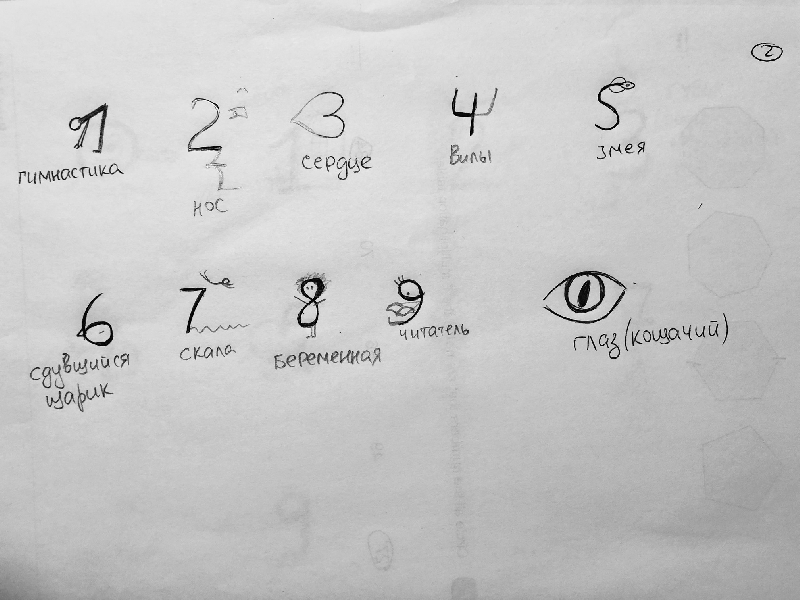 2
1 2 3 4 5
гимнастика нос сердце вилы змея
6 7 8 9
сдувшийся скала Беременная читатель глаз (кошачий)
шарик